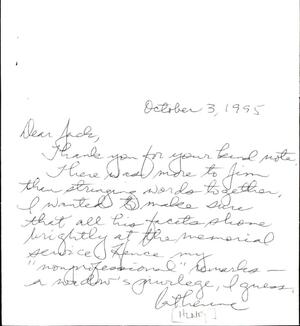 October 3, 1995
Dear Jack,
Thank you for your kind note.
There was more to Jim
than stringing words together,
I wanted to make sure
that all his facets shone
brightly at the memorial
service. Hence my
"nonprofessional" remarks —
a widow's privilege, I guess.
Catherine